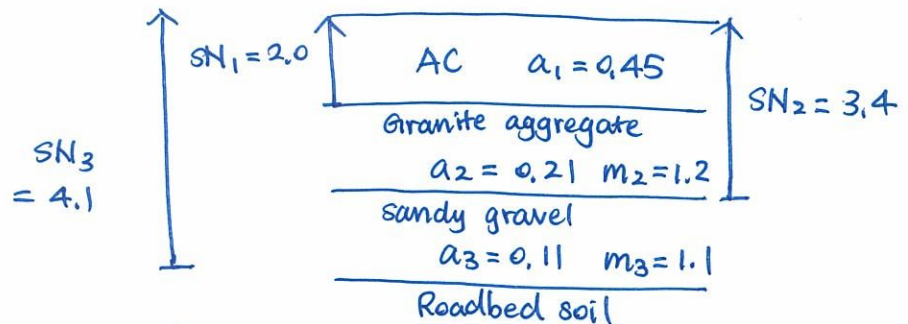 SN₁ = 2.0
AC a₁ = 0.45
SN₂ = 3.4
Granite aggregate
a₂ = 0.21 m₂ = 1.2
SN₃
= 4.1
sandy gravel
a₃ = 0.11 m₃ = 1.1
Roadbed soil